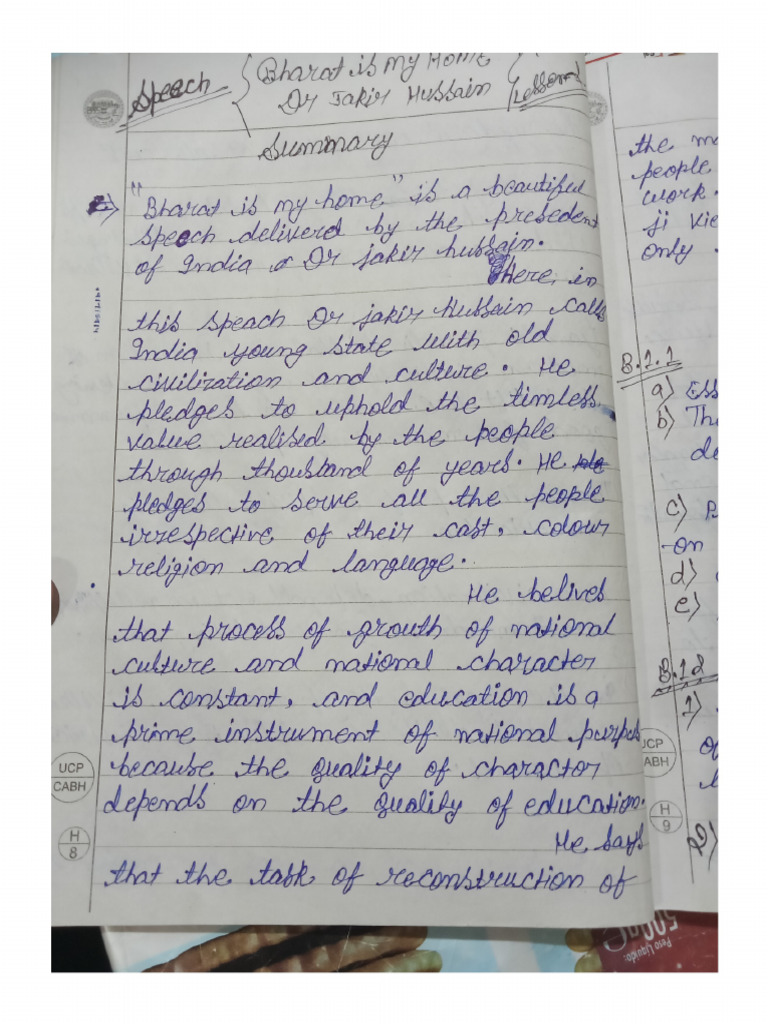 Speech { Bharat is my Home { Lesson
Dr Jakir Hussain
Summary
"Bharat is my home" is a beautiful
speech deliverd by the presedent
of India Dr jakir hussain.
Here, in
this speach Dr jakir Hussain calls
India young state with old
civilization and culture. He
pledges to uphold the timless
value realised by the people
through thoustand of years. He
pledges to serve all the people
irrespective of their cast, colour
religion and language.
He belives
that process of growth of national
culture and national character
is constant, and education is a
prime instrument of national
because the quality of charactor
depends on the quality of education.
He says
that the task of reconstruction of
UCP
CABH
H
8
the
people
work.
ji
only
B.1.1
a)
b)
c)
on
d)
e)
B.1.2
1)
2)
UCP
ABH
H
9
500g
Peso Líquido: